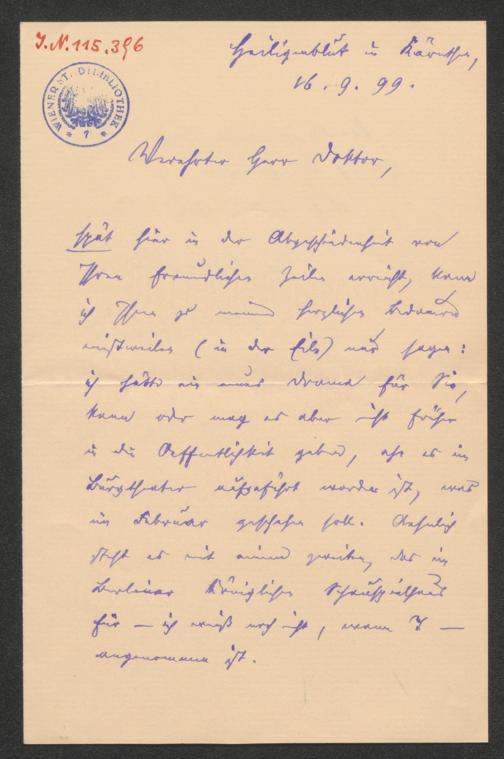 J.N. 115.396
WIENER STADTBIBLIOTHEK
* 7 *
Heiligenblut in Kärnthen,
16. 9. 99.
Verehrter Herr Doktor,
spät hier in der Abgeschiedenheit von
Ihren freundlichen Zeilen erreicht, kann
ich Ihnen zu meinem herzlichen Bedauern
einstweilen (in der Eile) nur sagen:
ich hätte ein neues Drama für Sie,
kann oder mag es aber nicht früher
in die Oeffentlichkeit geben, ehe es im
Burgtheater aufgeführt worden ist, was
im Februar geschehen soll. Aehnlich
steht es mit einem zweiten, das im
Berliner Königlichen Schauspielhaus
für — ich weiß noch nicht, wann ? —
angenommen ist.